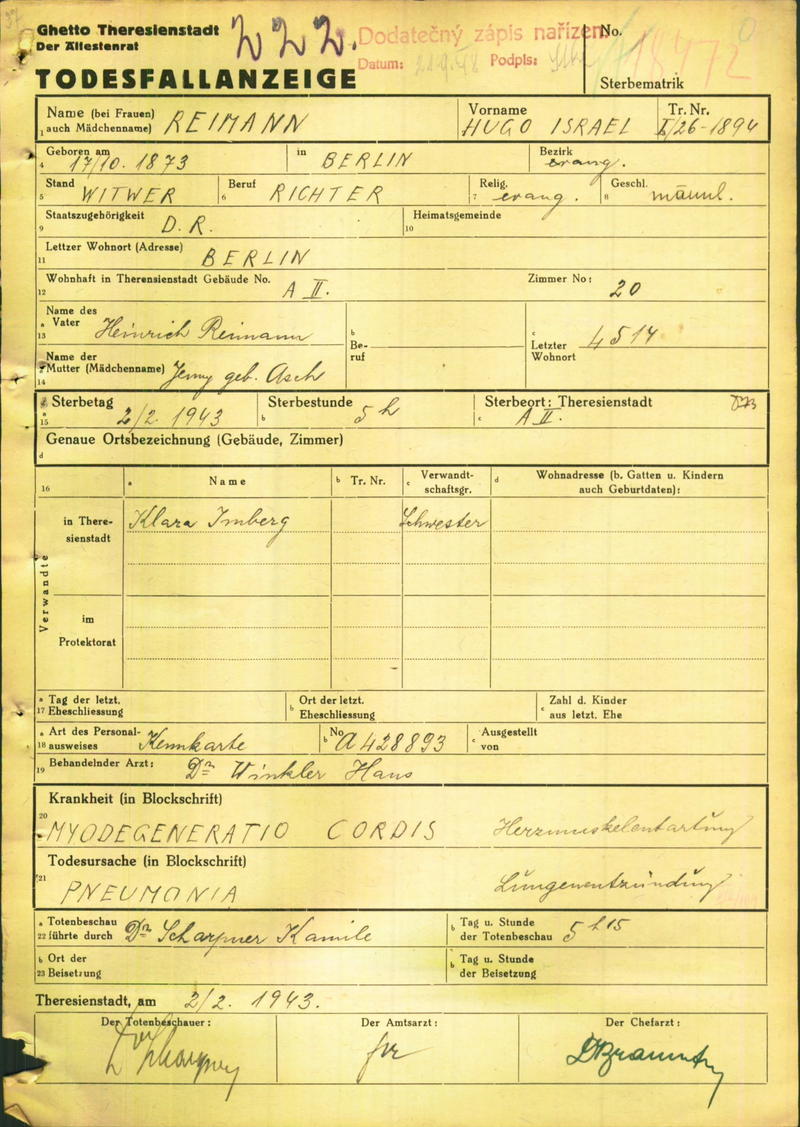 Ghetto Theresienstadt
Der Ältestenrat
Dodatečný zápis nařízen.
Datum: Podpis:
No. 18472
TODESFALLANZEIGE
Sterbematrik
Name (bei Frauen) auch Mädchenname) REIMANN Vorname HUGO ISRAEL Tr. Nr. I/26-1894
1
4 Geboren am 17/10. 1873 in BERLIN Bezirk evang.
5 Stand WITWER 6 Beruf RICHTER 7 Relig. evang. 8 Geschl. männl.
9 Staatszugehörigkeit D.R. 10 Heimatsgemeinde
11 Lettzer Wohnort (Adresse) BERLIN
12 Wohnhaft in Therensienstadt Gebäude No. A II. Zimmer No: 20
a 13 Name des Vater Heinrich Reimann b Beruf c Letzter Wohnort 4514
14 Name der Mutter (Mädchenname) Jenny geb. Asch
a 15 Sterbetag 2/2. 1943 b Sterbestunde 5 h c Sterbeort: Theresienstadt A II.
d Genaue Ortsbezeichnung (Gebäude, Zimmer)
16 a Name b Tr. Nr. c Verwandtschaftsgr. d Wohnadresse (b. Gatten u. Kindern auch Geburtdaten):
Verwandte
in Theresienstadt Klara Imberg Schwester
im Protektorat
a 17 Tag der letzt. Eheschliessung b Ort der letzt. Eheschliessung c Zahl d. Kinder aus letzt. Ehe
a 18 Art des Personalausweises Kennkarte b No A 428893 c Ausgestellt von
19 Behandelnder Arzt: Dr Winkler Hans
Krankheit (in Blockschrift)
20 MYODEGENERATIO CORDIS Herzmuskelentartung
Todesursache (in Blockschrift)
21 PNEUMONIA Lungenentzündung
a 22 Totenbeschau führte durch Dr Scharpner Kamile b Tag u. Stunde der Totenbeschau 5 h 15
b 23 Ort der Beisetzung b Tag u. Stunde der Beisetzung
Theresienstadt, am 2/2. 1943.
Der Totenbeschauer: Der Amtsarzt: Der Chefarzt: